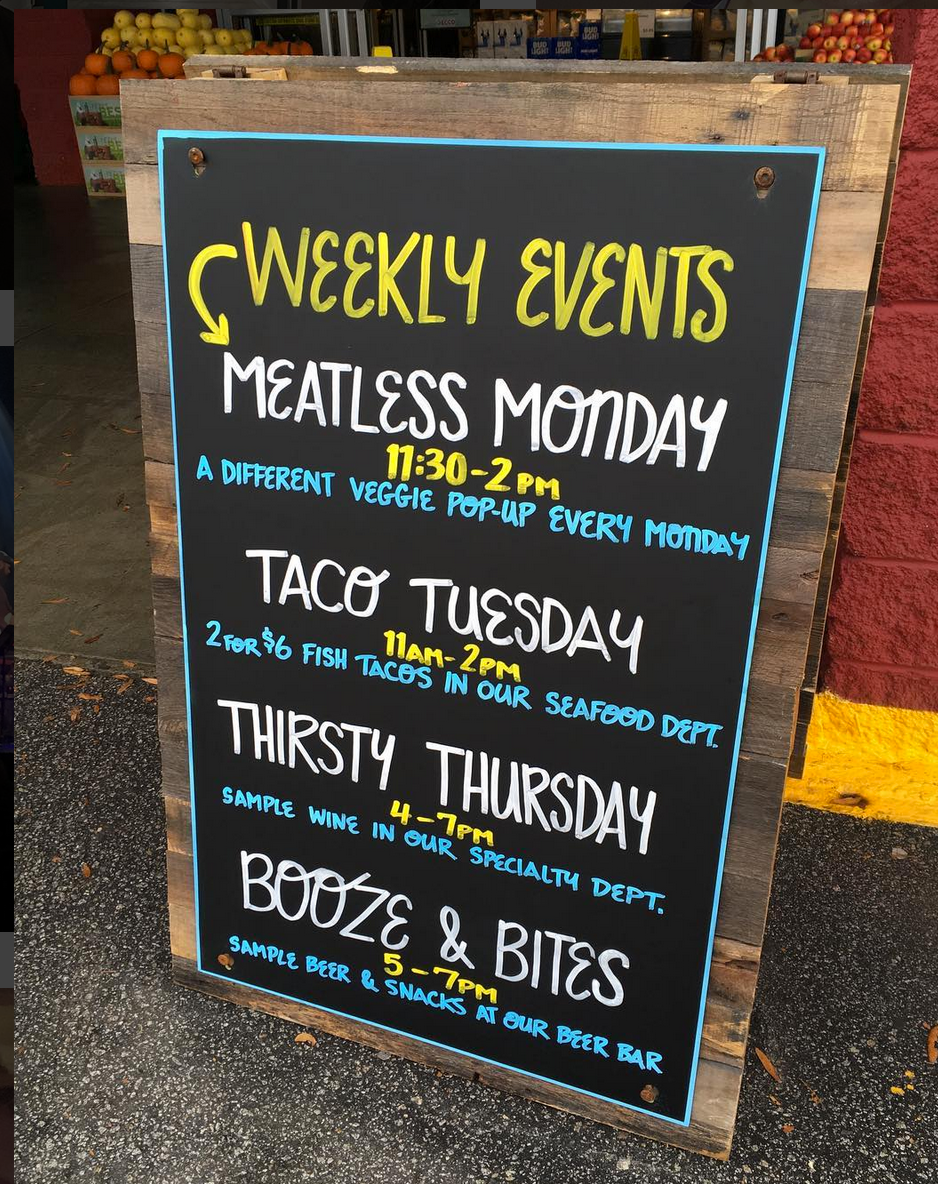 BUD LIGHT
BUD LIGHT
WEEKLY EVENTS
MEATLESS MONDAY
11:30-2PM
A DIFFERENT VEGGIE POP-UP EVERY MONDAY
TACO TUESDAY
11AM-2PM
2 FOR $6 FISH TACOS IN OUR SEAFOOD DEPT.
THIRSTY THURSDAY
4-7PM
SAMPLE WINE IN OUR SPECIALTY DEPT.
BOOZE & BITES
5-7PM
SAMPLE BEER & SNACKS AT OUR BEER BAR